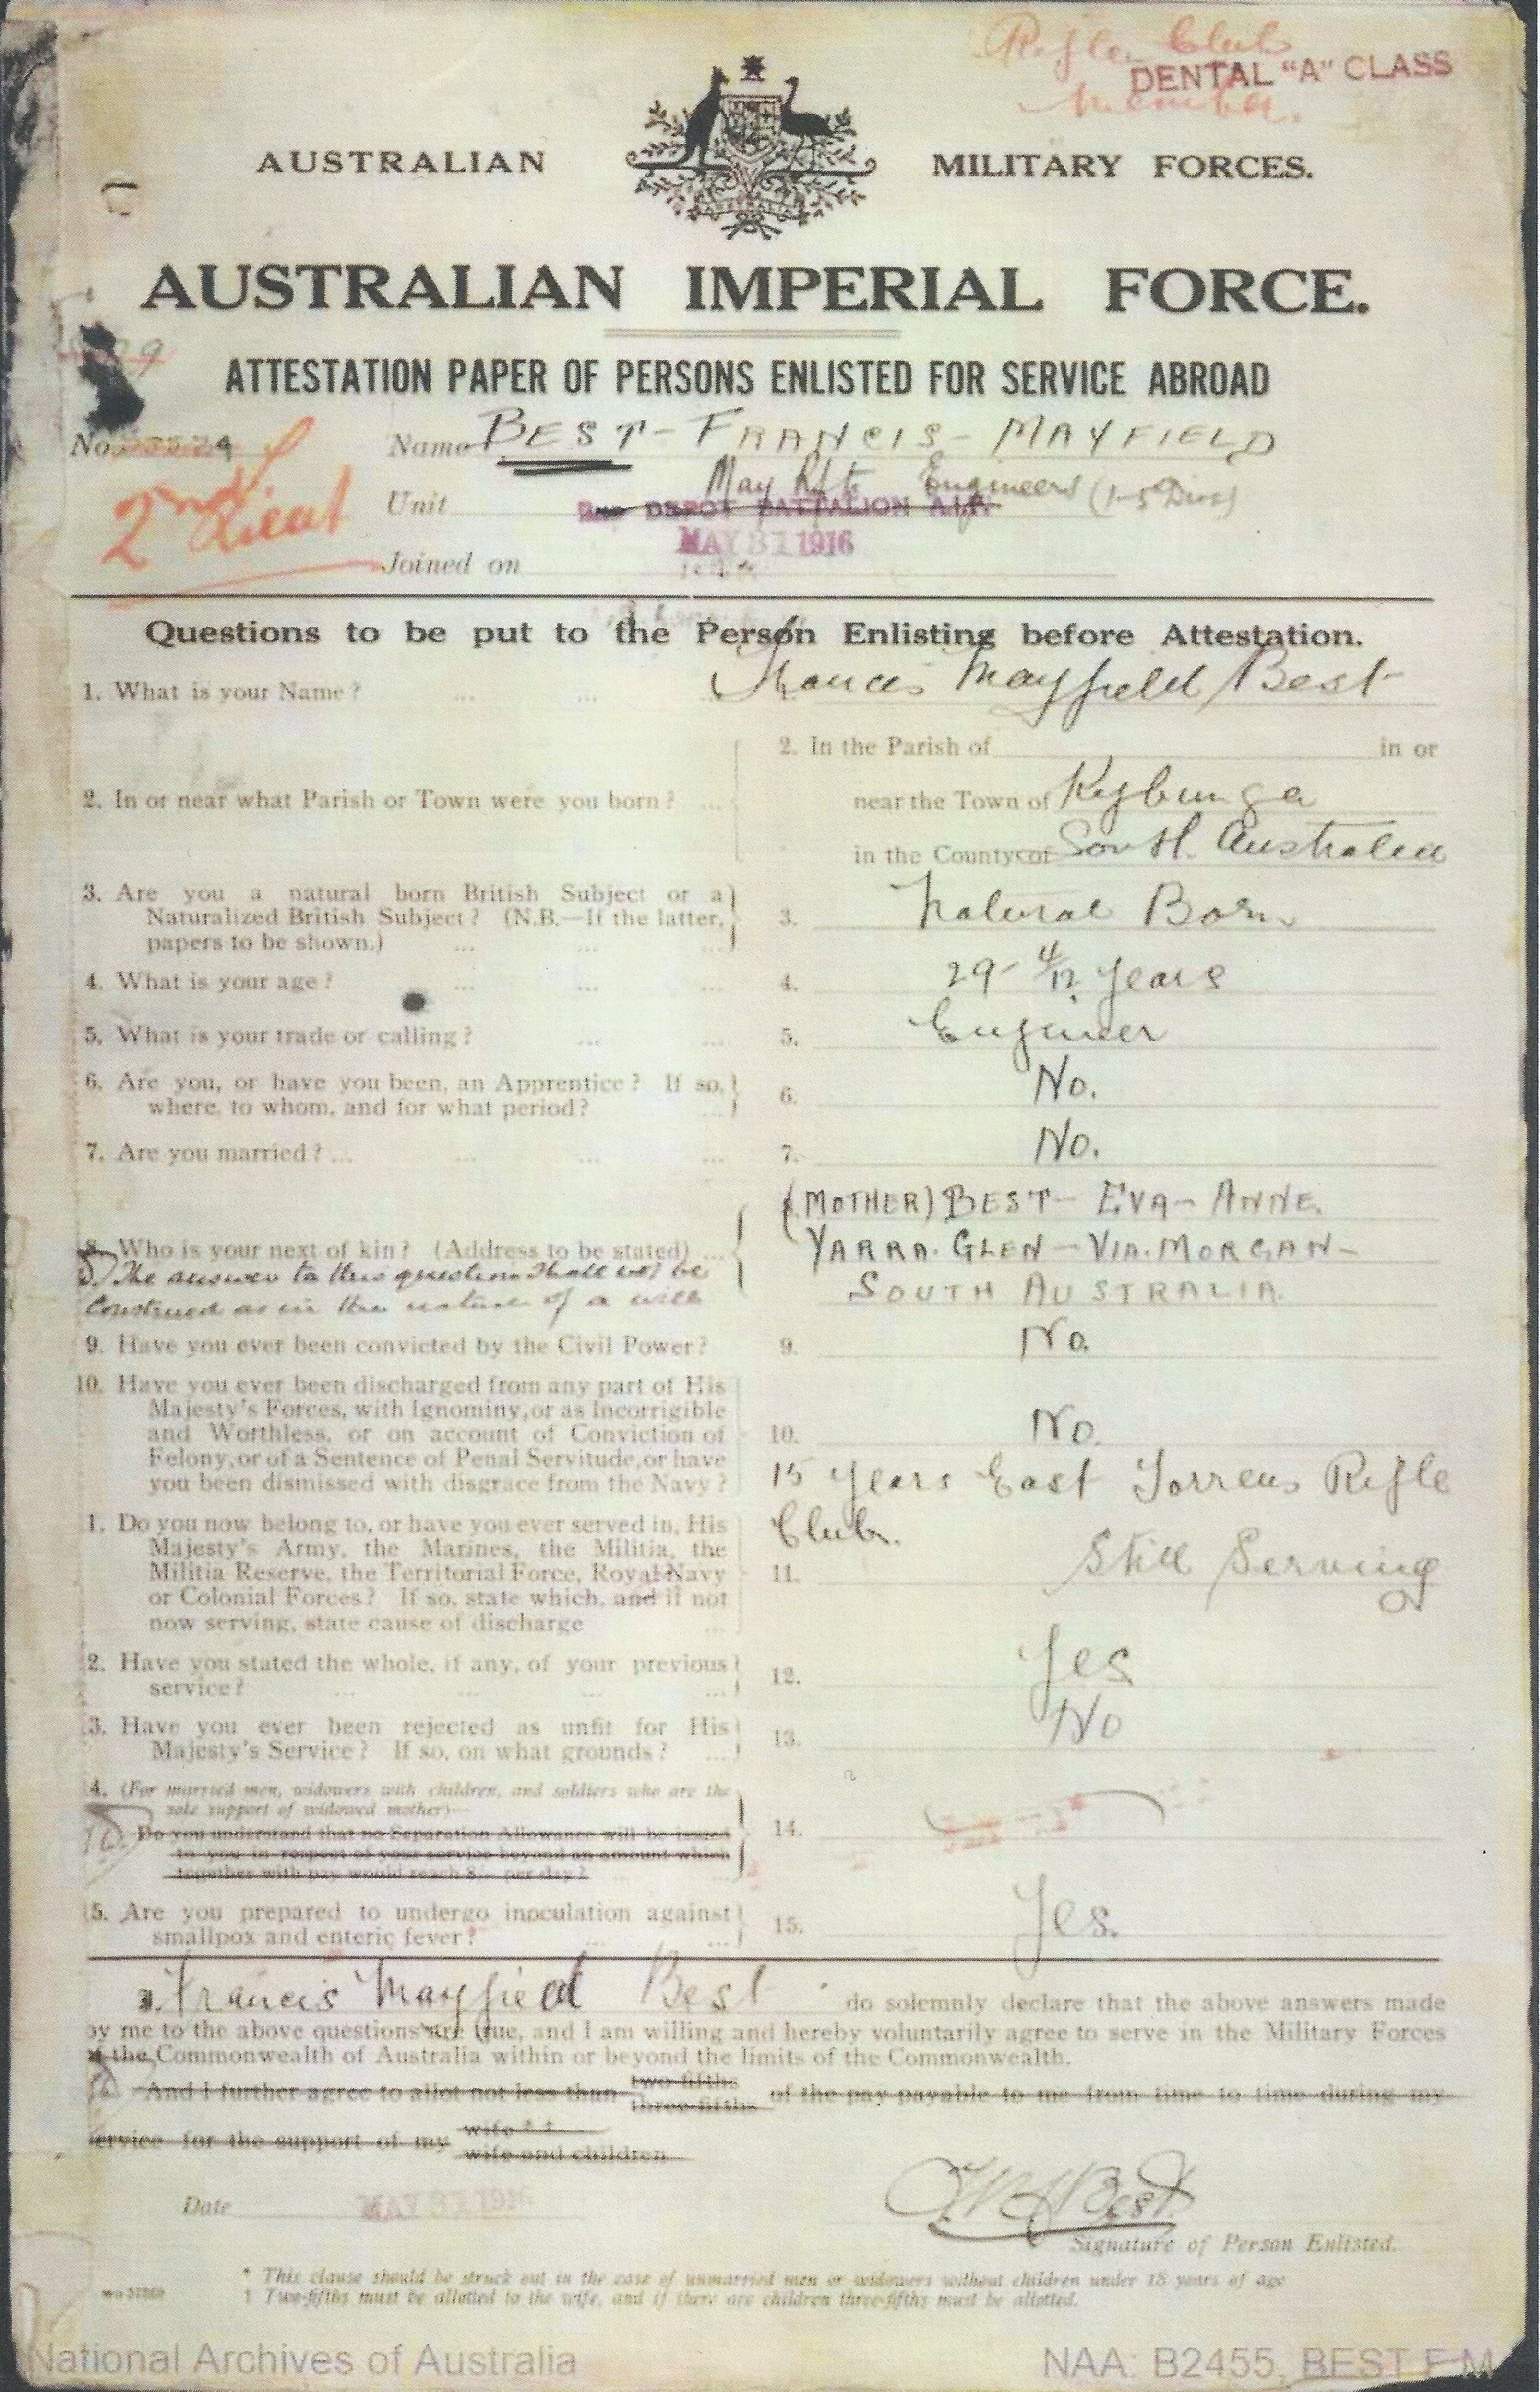 Rifle Club
DENTAL "A" CLASS
Member.
AUSTRALIAN MILITARY FORCES.
AUSTRALIAN IMPERIAL FORCE.
ATTESTATION PAPER OF PERSONS ENLISTED FOR SERVICE ABROAD
No. Name BEST - FRANCIS - MAYFIELD
2nd Lieut
May Rfts Engineers (1-5 Divs)
Unit 2nd DEPOT BATTALION A.I.F.
MAY 31 1916
Joined on
Questions to be put to the Person Enlisting before Attestation.
1. What is your Name? ... ... ... Francis Mayfield Best
2. In the Parish of in or
2. In or near what Parish or Town were you born? ... near the Town of Kybunga
in the County of South Australia
3. Are you a natural born British Subject or a
Naturalized British Subject? (N.B.—If the latter, 3. Natural Born
papers to be shown.) ... ... ...
4. What is your age? ... ... ... 4. 29 - 4/12 years
5. What is your trade or calling? ... ... 5. Engineer
6. Are you, or have you been, an Apprentice? If so, 6. No.
where, to whom, and for what period? ...
7. Are you married? ... ... ... ... 7. No.
(MOTHER) BEST - EVA - ANNE.
8. Who is your next of kin? (Address to be stated) ... YARRA. GLEN - VIA. MORGAN -
The answer to this question shall not be
construed as in the nature of a will SOUTH AUSTRALIA.
9. Have you ever been convicted by the Civil Power? 9. No.
10. Have you ever been discharged from any part of His
Majesty's Forces, with Ignominy, or as Incorrigible
and Worthless, or on account of Conviction of 10. No.
Felony, or of a Sentence of Penal Servitude, or have
you been dismissed with disgrace from the Navy? 15 years East Torrens Rifle
1. Do you now belong to, or have you ever served in, His Club.
Majesty's Army, the Marines, the Militia, the
Militia Reserve, the Territorial Force, Royal Navy 11. Still Serving
or Colonial Forces? If so, state which, and if not
now serving, state cause of discharge ...
2. Have you stated the whole, if any, of your previous 12. Yes
service? ... ... ... ...
3. Have you ever been rejected as unfit for His 13. No
Majesty's Service? If so, on what grounds? ...
4. (For married men, widowers with children, and soldiers who are the
sole support of widowed mother)—
Do you understand that no Separation Allowance will be issued 14.
to you in respect of your service beyond an amount which
together with pay would reach 8/- per day?
15. Are you prepared to undergo inoculation against 15. Yes.
smallpox and enteric fever? ... ...
I, Francis Mayfield Best do solemnly declare that the above answers made
by me to the above questions are true, and I am willing and hereby voluntarily agree to serve in the Military Forces
of the Commonwealth of Australia within or beyond the limits of the Commonwealth.
And I further agree to allot not less than two-fifths three-fifths of the pay payable to me from time to time during my
service for the support of my wife * † wife and children
Date MAY 31 1916
F M Best
Signature of Person Enlisted.
* This clause should be struck out in the case of unmarried men or widowers without children under 18 years of age
† Two-fifths must be allotted to the wife, and if there are children three-fifths must be allotted.
National Archives of Australia NAA: B2455, BEST F M